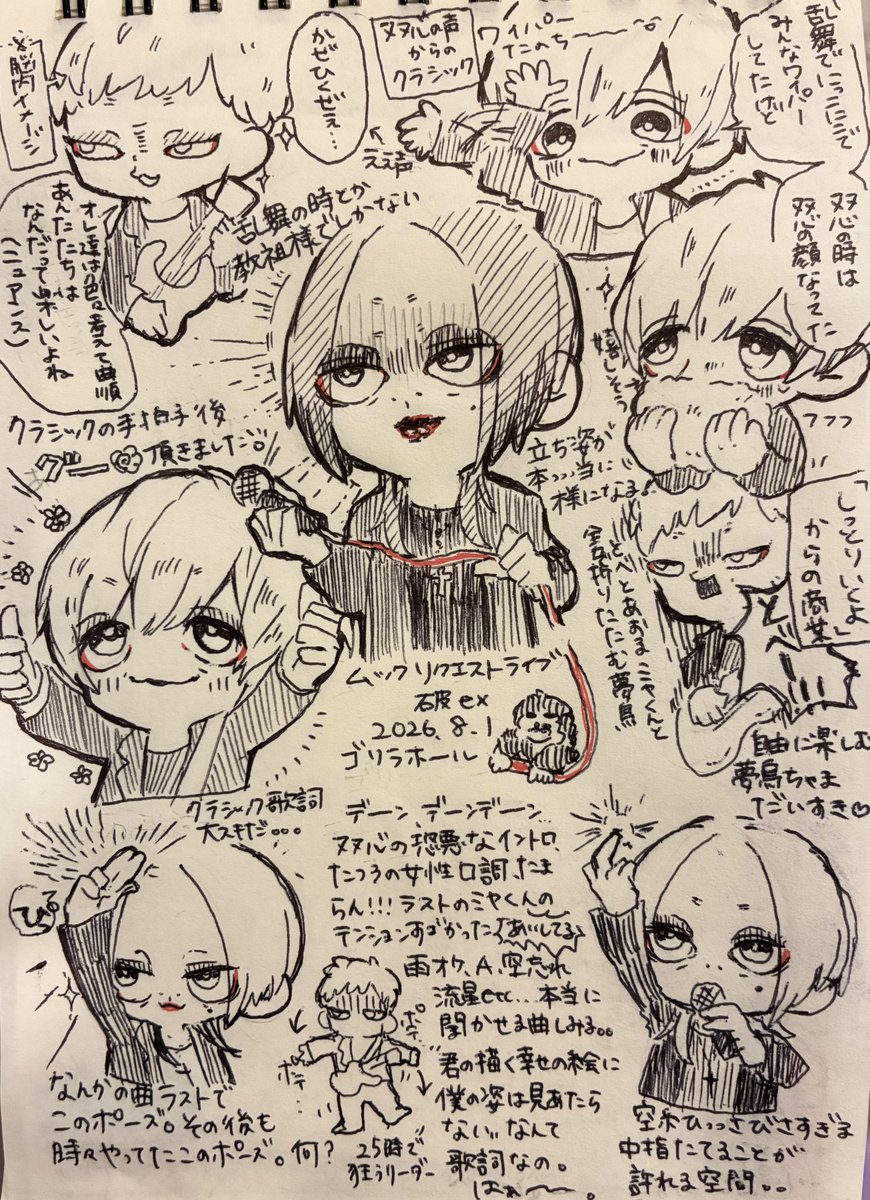 乱舞でにっこにこで
みんなワイパー
してたけど
双心の時は
双心の顔なってた
ワイパー
たのち〜〜〜
ダダルの声
からの
クラシック
ええ声
かぜひくぜぇ…
※脳内イメージ
オレ達は色々考えて曲順
あんたたちは
なんだって楽しいよね
(ニュアンス)
乱舞の時とか
教祖様でしかない
嬉しそう
フフフ
クラシックの手拍子後
グー 頂きましただ。
立ち姿が
本っっ当に
様になる!
「しっとりいくよ」
からの商業
とべとあおるミヤくんと
全員折りたたむ夢烏
とべ
自由に楽しむ
夢烏ちゃま
だいすき
ムック リクエストライブ
破 ex
2026.8.1
ゴリラホール
クラシック歌詞
大スキだ…
デーン デーンデーン
双心の恐悪なイントロ、
たつろの女性口調、たま
らん!!! ラストのミヤくんの
テンションすごかった「あいしてる」
雨オケ、A、空忘れ
流星etc…本当に
聞かせる曲しみる。。
君の描く幸せの絵に
僕の姿は見あたら
ない、、なんて
歌詞なの。
はぁ〜〜。
ぴっ
なんかの曲ラストで
このポーズ。その後も
時々やってたこのポーズ。何?
ポテ
ポテ
25時で
狂うリーダー
空米ひっっさびさすぎま
中指たてることが
許れる空間。。